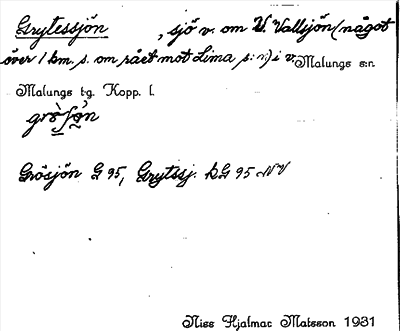 Grytessjön , sjö v. om V. Vallsjön (något
över 1 km. s. om rået mot Lima s:n) i v. Malungs s:n.
Malungs tg. Kopp. l.
Grösjön G 95, Grytssj. kG 95 NV
Niss Hjalmar Matsson 1931